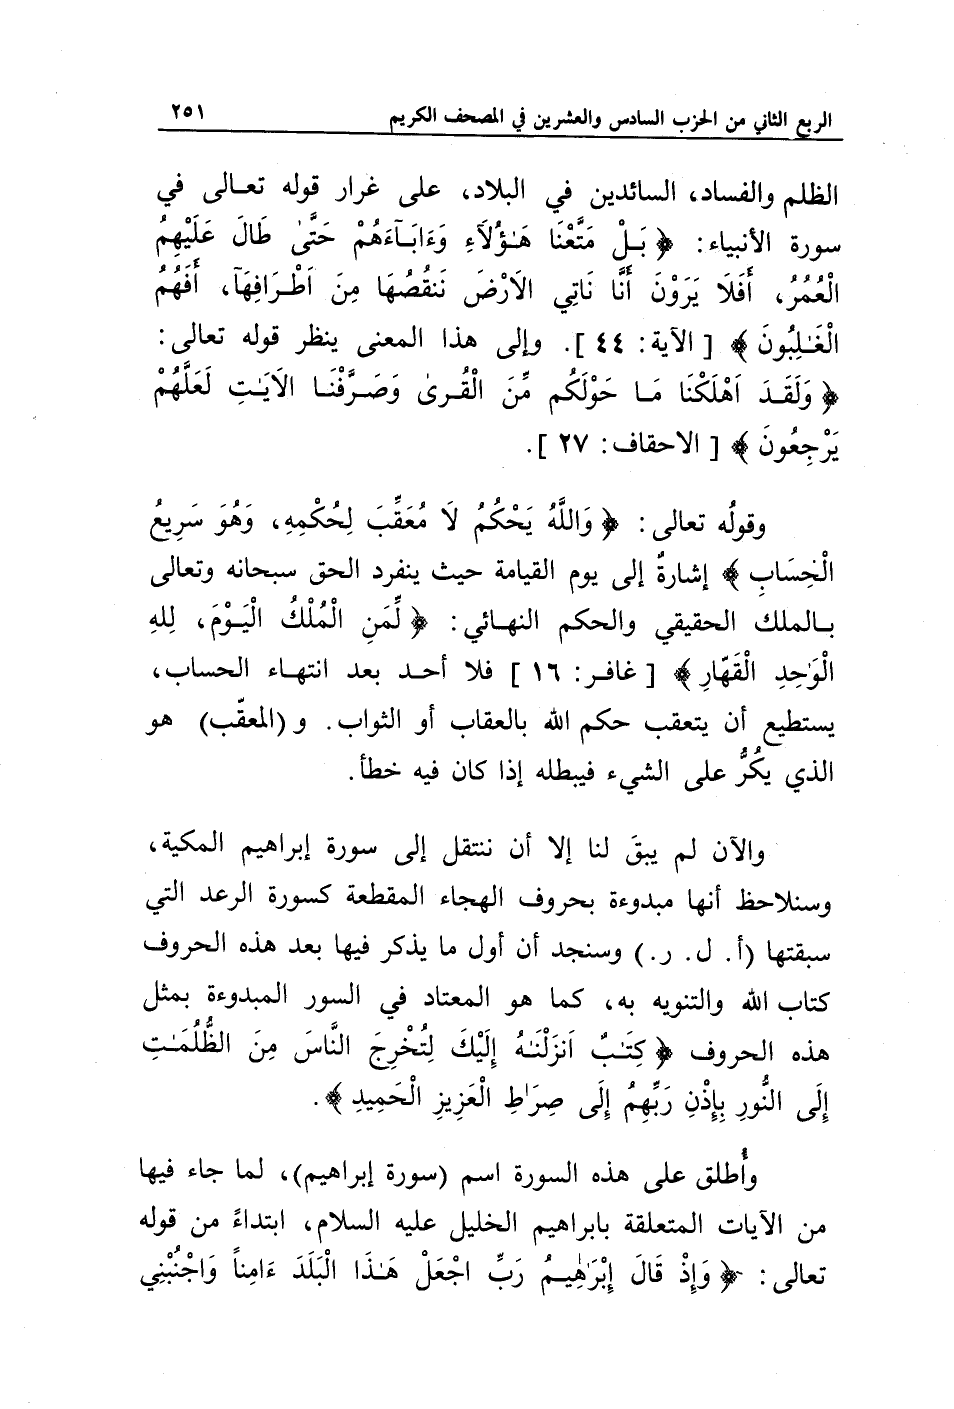 الربع الثاني من الحزب السادس والعشرين في المصحف الكريم ٢٥١
الظلم والفساد، السائدين في البلاد، على غرار قوله تعـالى في
سورة الأنبياء: ﴿ بَـلْ مَتَّعْنَا هَـٰؤُلَآءِ وَءَابَـآءَهُمْ حَتَّىٰ طَالَ عَلَيْهِمُ
الْعُمُرُ، أَفَلَا يَرَوْنَ أَنَّا نَاتِي الَارْضَ نَنقُصُهَا مِنَ اَطْـرَافِهَآ، أَفَهُمُ
الْغَـٰلِبُونَ ﴾ [ الآية: ٤٤ ]. وإلى هذا المعنى ينظر قوله تعالى:
﴿ وَلَقَـدَ اَهْلَكْنَا مَـا حَوْلَكُم مِّنَ الْقُـرىٰ وَصَـرَّفْنَـا الَايَـٰتِ لَعَلَّهُمْ
يَرْجِعُونَ ﴾ [ الاحقاف: ٢٧ ].
وقولُه تعالى: ﴿ وَاللَّهُ يَحْكُمُ لَا مُعَقِّبَ لِحُكْمِهِ، وَهُوَ سَرِيعُ
الْحِسَابِ ﴾ إشارةٌ إلى يوم القيامة حيث ينفرد الحق سبحانه وتعالى
بـالملك الحقيقي والحكم النهـائي: ﴿ لِّمَنِ الْمُلْكُ الْيَـوْمَ، لِلهِ
الْوَٰحِدِ الْقَهَّارِ ﴾ [ غافـر: ١٦ ] فلا أحـد بعد انتهـاء الحساب،
يستطيع أن يتعقب حكم الله بالعقاب أو الثواب. و (المعقّب) هو
الذي يكُرُّ على الشيء فيبطله إذا كان فيه خطأ.
والآن لم يبقَ لنا إلا أن ننتقل إلى سورة إبراهيم المكية،
وسنلاحظ أنها مبدوءة بحروف الهجاء المقطعة كسورة الرعد التي
سبقتها (أ. ل. ر.) وسنجد أن أول ما يذكر فيها بعد هذه الحروف
كتاب الله والتنويه به، كما هو المعتاد في السور المبدوءة بمثل
هذه الحروف ﴿ كِتَـٰبٌ اَنزَلْنَـٰهُ إِلَيْكَ لِتُخْرِجَ النَّاسَ مِنَ الظُّلُمَـٰتِ
إِلَى النُّورِ بِإِذْنِ رَبِّهِمُ إِلَى صِرَٰطِ الْعَزِيزِ الْحَمِيدِ ﴾.
وأُطلق على هذه السورة اسم (سورة إبراهيم)، لما جاء فيها
من الآيات المتعلقة بابراهيم الخليل عليه السلام، ابتداءً من قوله
تعالى: ﴿ وَإِذْ قَالَ إِبْرَٰهِيـمُ رَبِّ اجْعَلْ هَـٰذَا الْبَلَدَ ءَامِناً وَاجْنُبْنِي